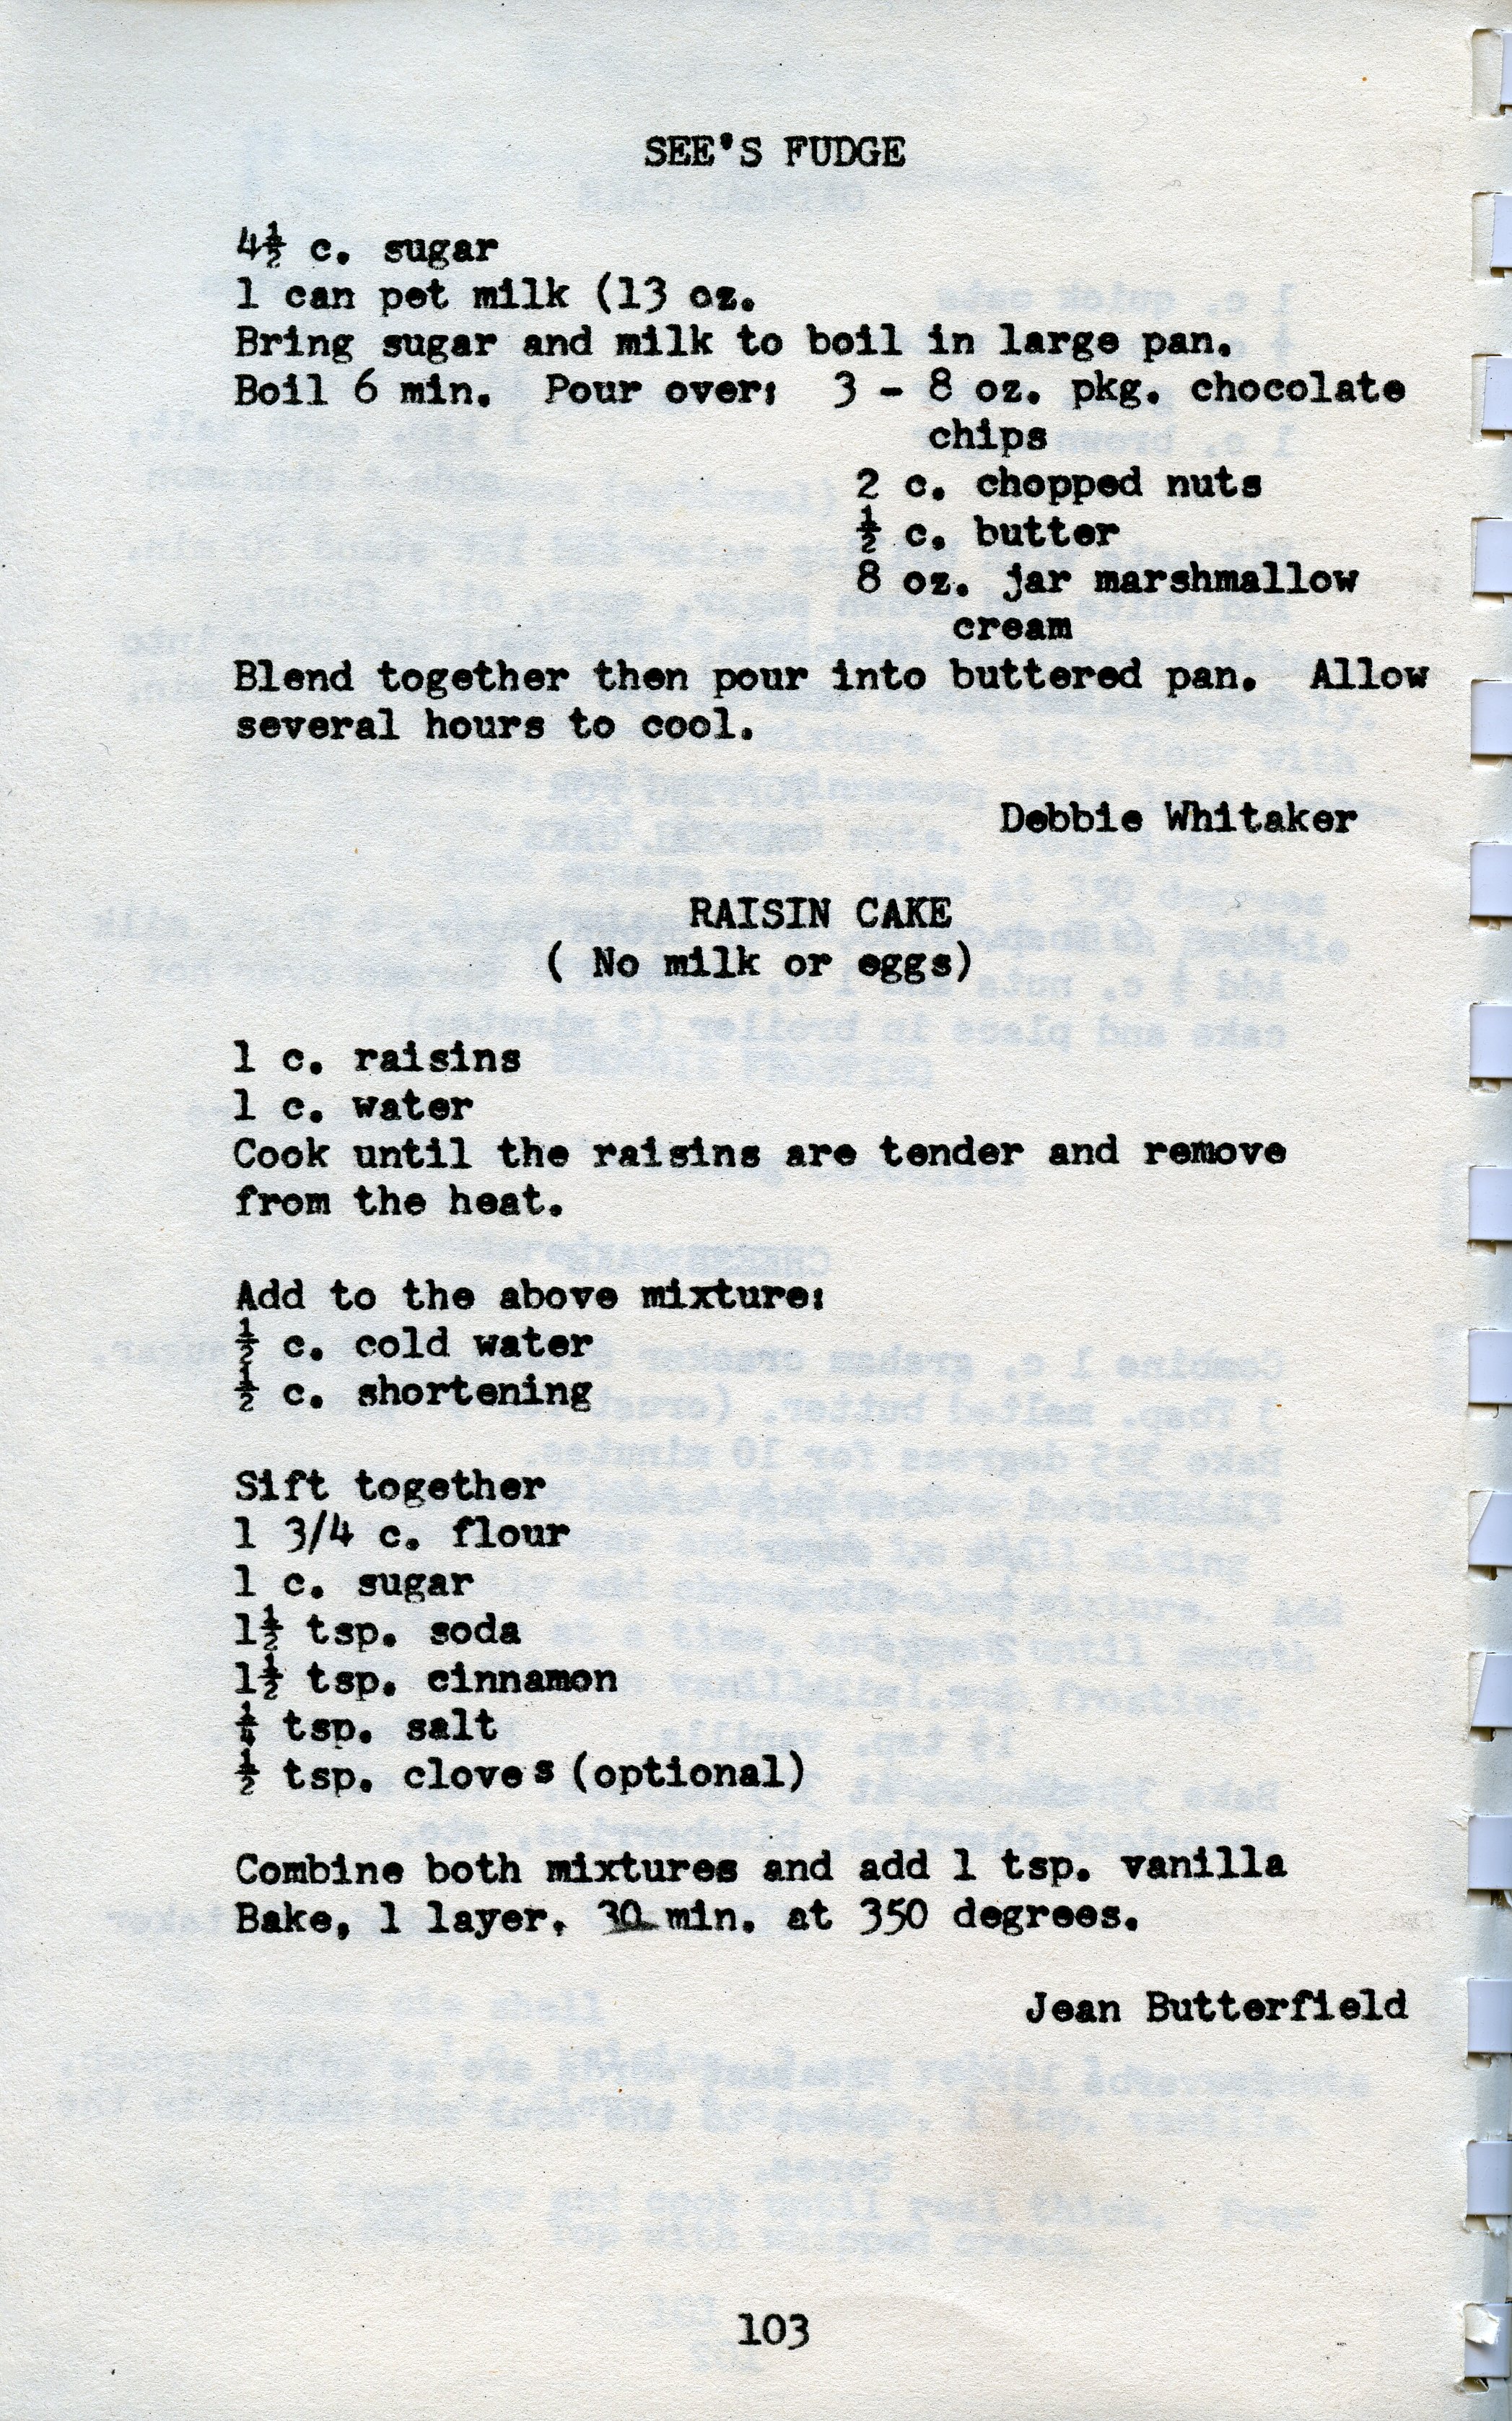 SEE'S FUDGE
4½ c. sugar
1 can pet milk (13 oz.
Bring sugar and milk to boil in large pan.
Boil 6 min. Pour over: 3 - 8 oz. pkg. chocolate
chips
2 c. chopped nuts
½ c. butter
8 oz. jar marshmallow
cream
Blend together then pour into buttered pan. Allow
several hours to cool.
Debbie Whitaker
RAISIN CAKE
( No milk or eggs)
1 c. raisins
1 c. water
Cook until the raisins are tender and remove
from the heat.
Add to the above mixture:
½ c. cold water
½ c. shortening
Sift together
1 3/4 c. flour
1 c. sugar
1½ tsp. soda
1½ tsp. cinnamon
¼ tsp. salt
½ tsp. cloves (optional)
Combine both mixtures and add 1 tsp. vanilla
Bake, 1 layer, 30 min. at 350 degrees.
Jean Butterfield
103